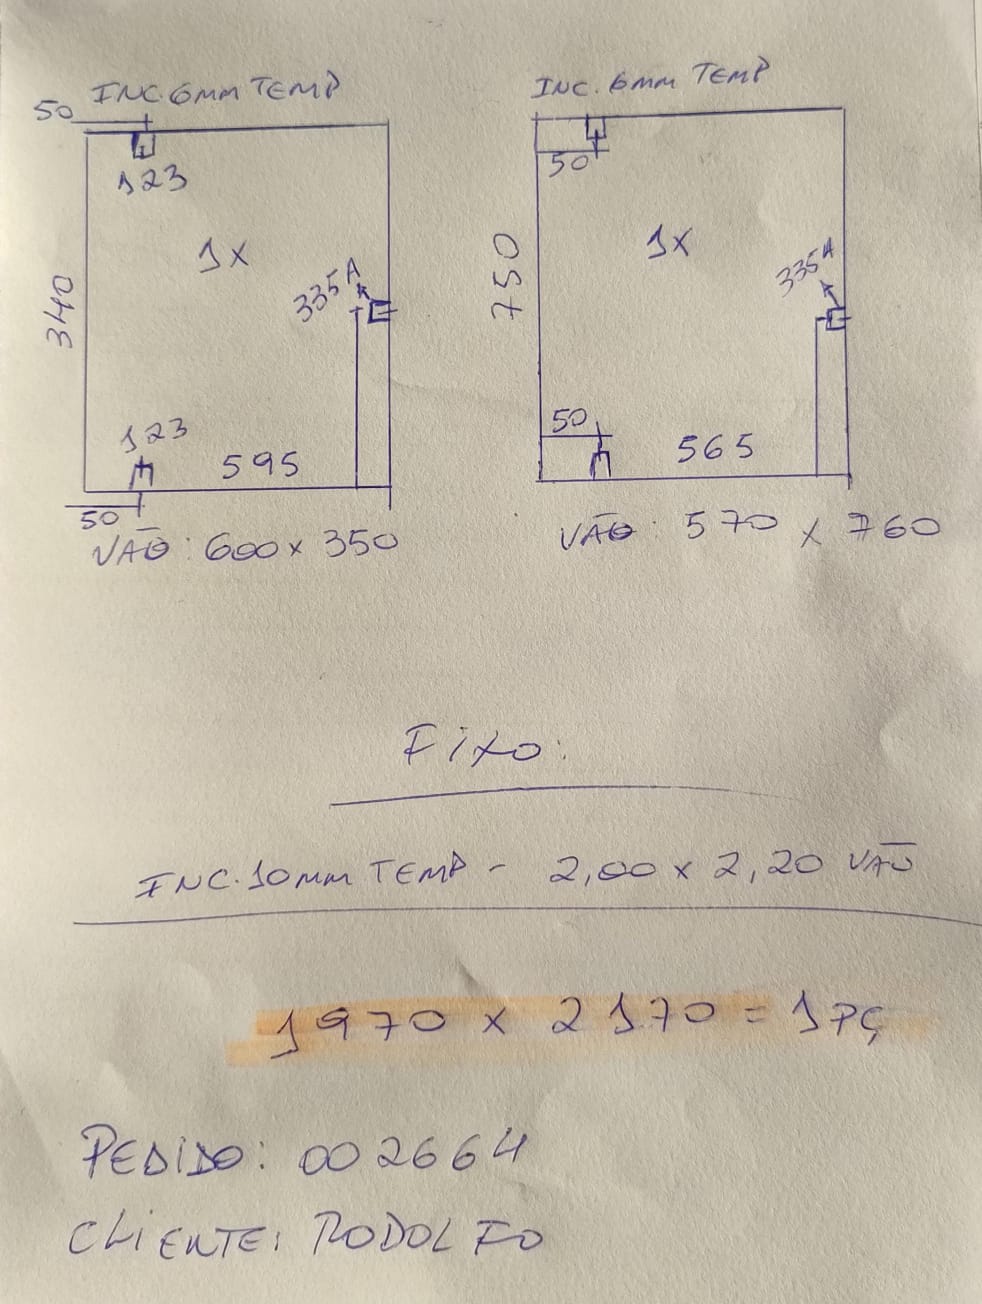 INC. 6MM TEMP
50
123
1X
335A
340
123
595
50
VÃO: 600 x 350
INC. 6MM TEMP
50
1X
335A
750
50
565
VÃO: 570 x 760
Fixo:
INC. 10MM TEMP - 2,00 x 2,20 VÃO
1970 x 2170 = 1PÇ
PEDIDO: 002664
CLIENTE: RODOLFO